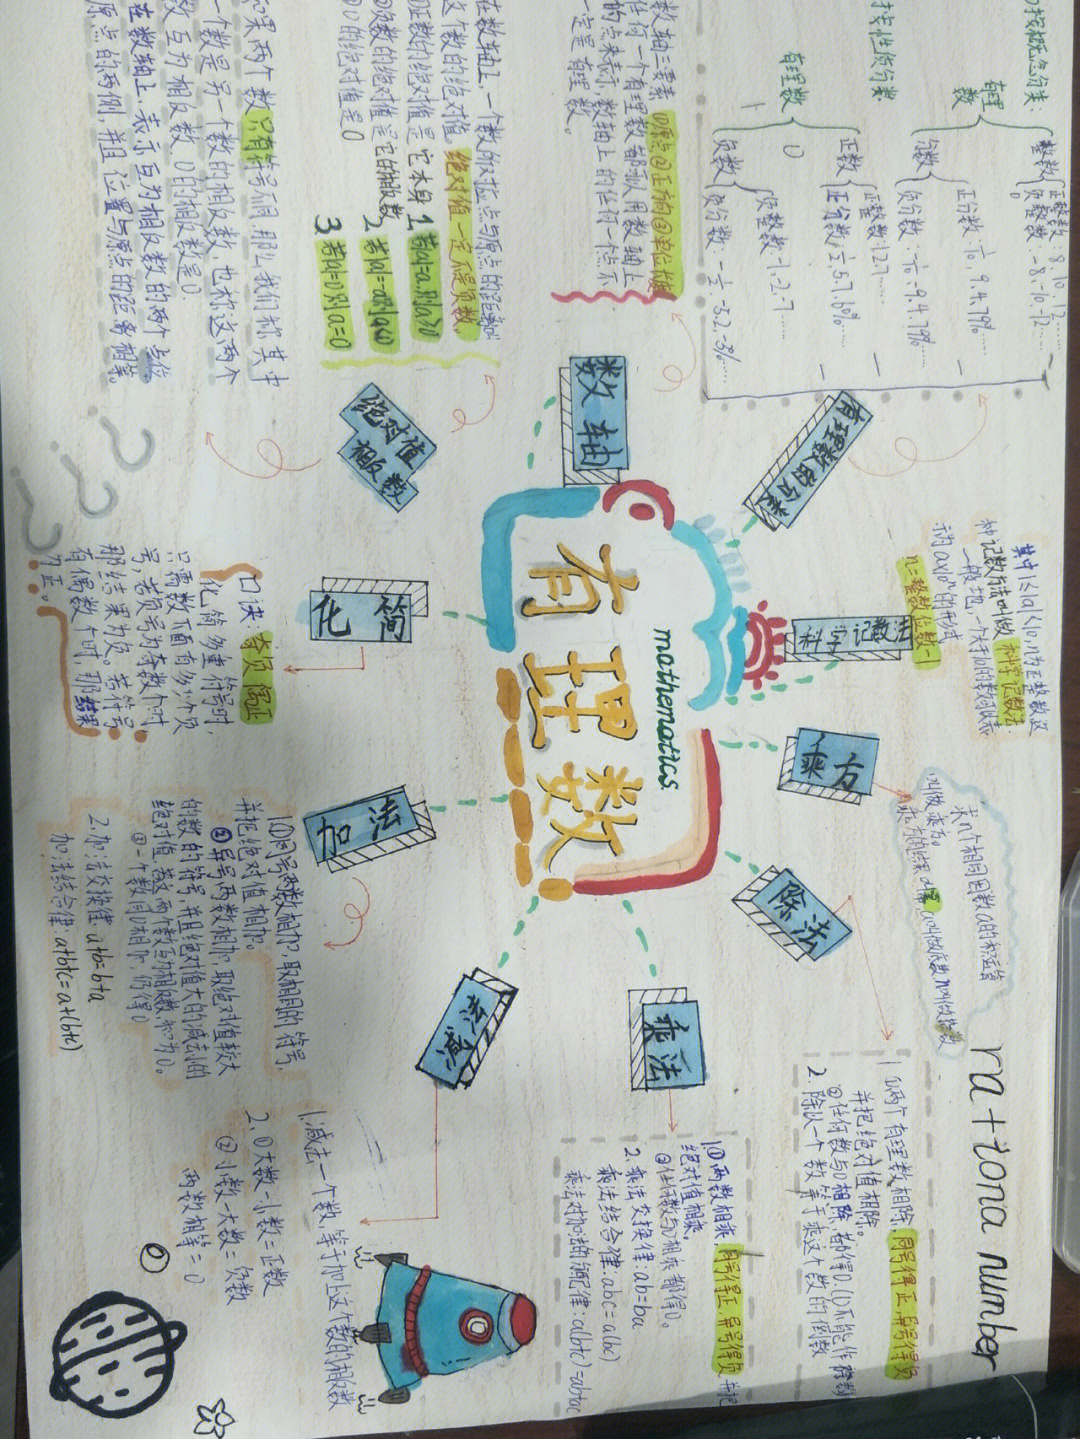 按概念分类:
有理数
整数
正整数: 8, 10, 12……
0
负整数: -8, -10, -12…
分数
正分数: 1/10, 9.4, 79%……
负分数: -1/10, -9.4, 79%……
按性质分类
有理数
正数
正整数: 1.2.7……
正分数: 1/2, 5.7, 6%……
0
负数
负整数: -1, -2, -7……
负分数: -1/2, -5.2, -3%…
有理数的分类
数轴三要素 ①原点②正方向③单位长度
任何一个有理数都可以用数轴上
的点来表示, 数轴上的任何一个点不
一定是有理数。
数轴
在数轴上, 一个数所对应点与原点的距离叫
这个数的绝对值。绝对值一定不是负数,
①正数的绝对值是它本身 1 若|a|=a, 则a≥0
②负数的绝对值是它的相反数 2 若|a|=-a则a≤0
③0的绝对值是0 3 若|a|=0则a=0
绝对值
相反数
如果两个数只有符号不同, 那么我们称其中
一个数是另一个数的相反数, 也称这两个
数互为相反数 0的相反数是0
在数轴上, 表示互为相反数的两个点位
原点的两侧, 并且位置与原点的距离相等。
其中1≤|a|<10, n为正整数, 这
种记数方法叫做科学记数法.
一般地, 一个大于10的数可以表
示为a×10ⁿ的形式
n=整数位数-1
科学记数法
有理数
mathematics
化简
口诀: 奇负偶正
化简多重符号时,
只需数下面有多少个负
号, 若负号为奇数个时,
那结果为负。若符号
有偶数个时, 那结果
为正。
乘方
求n个相同因数a的积运算
叫做乘方。
乘方的结果叫幂, a叫做底数, n叫做指数
除法
1 ①两个有理数相除, 同号得正, 异号得负
并把绝对值相除。
②任何数与0相除, 都得0, (0不能作除数
2. 除以一个数等于乘这个数的倒数
乘法
1①两数相乘, 同号得正, 异号得负 并把
绝对值相乘,
②任何数与0相乘都得0。
2. 乘法交换律: ab=ba
乘法结合律: abc=a(bc)
乘法对加法的分配律: a(b+c)=ab+ac
减法
1. 减去一个数, 等于加上这个数的相反数
2. ①大数-小数=正数
②小数-大数=负数
两数相等=0
加法
1①同号两数相加, 取相同的符号,
并把绝对值相加。
②异号两数相加, 取绝对值较大
的数的符号, 并且绝对值大的减去小的
绝对值, 若两个数互为相反数, 和为0。
③一个数同0相加, 仍得0
2. 加法交换律 a+b=b+a
加法结合律: a+b+c=a+(b+c)
ra+iona number